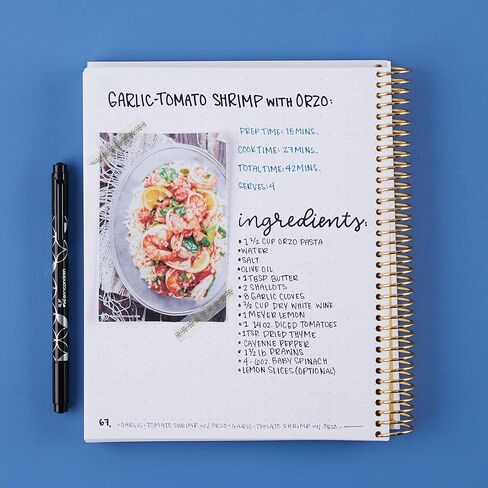 GARLIC-TOMATO SHRIMP WITH ORZO:
PREP TIME: 15 MINS.
COOK TIME: 27 MINS.
TOTAL TIME: 42 MINS.
SERVES: 4
ingredients:
• 1 ⅔ CUP ORZO PASTA
• WATER
• SALT
• OLIVE OIL
• 1 TBSP BUTTER
• 2 SHALLOTS
• 8 GARLIC CLOVES
• ⅔ CUP DRY WHITE WINE
• 1 MEYER LEMON
• 1 14OZ. DICED TOMATOES
• 1 TSP. DRIED THYME
• CAYENNE PEPPER
• 1 ½ lb. PRAWNS
• 4-6OZ. BABY SPINACH
• LEMON SLICES (OPTIONAL)
67. • GARLIC-TOMATO SHRIMP W/ ORZO • GARLIC-TOMATO SHRIMP W/ ORZO.
erincondren